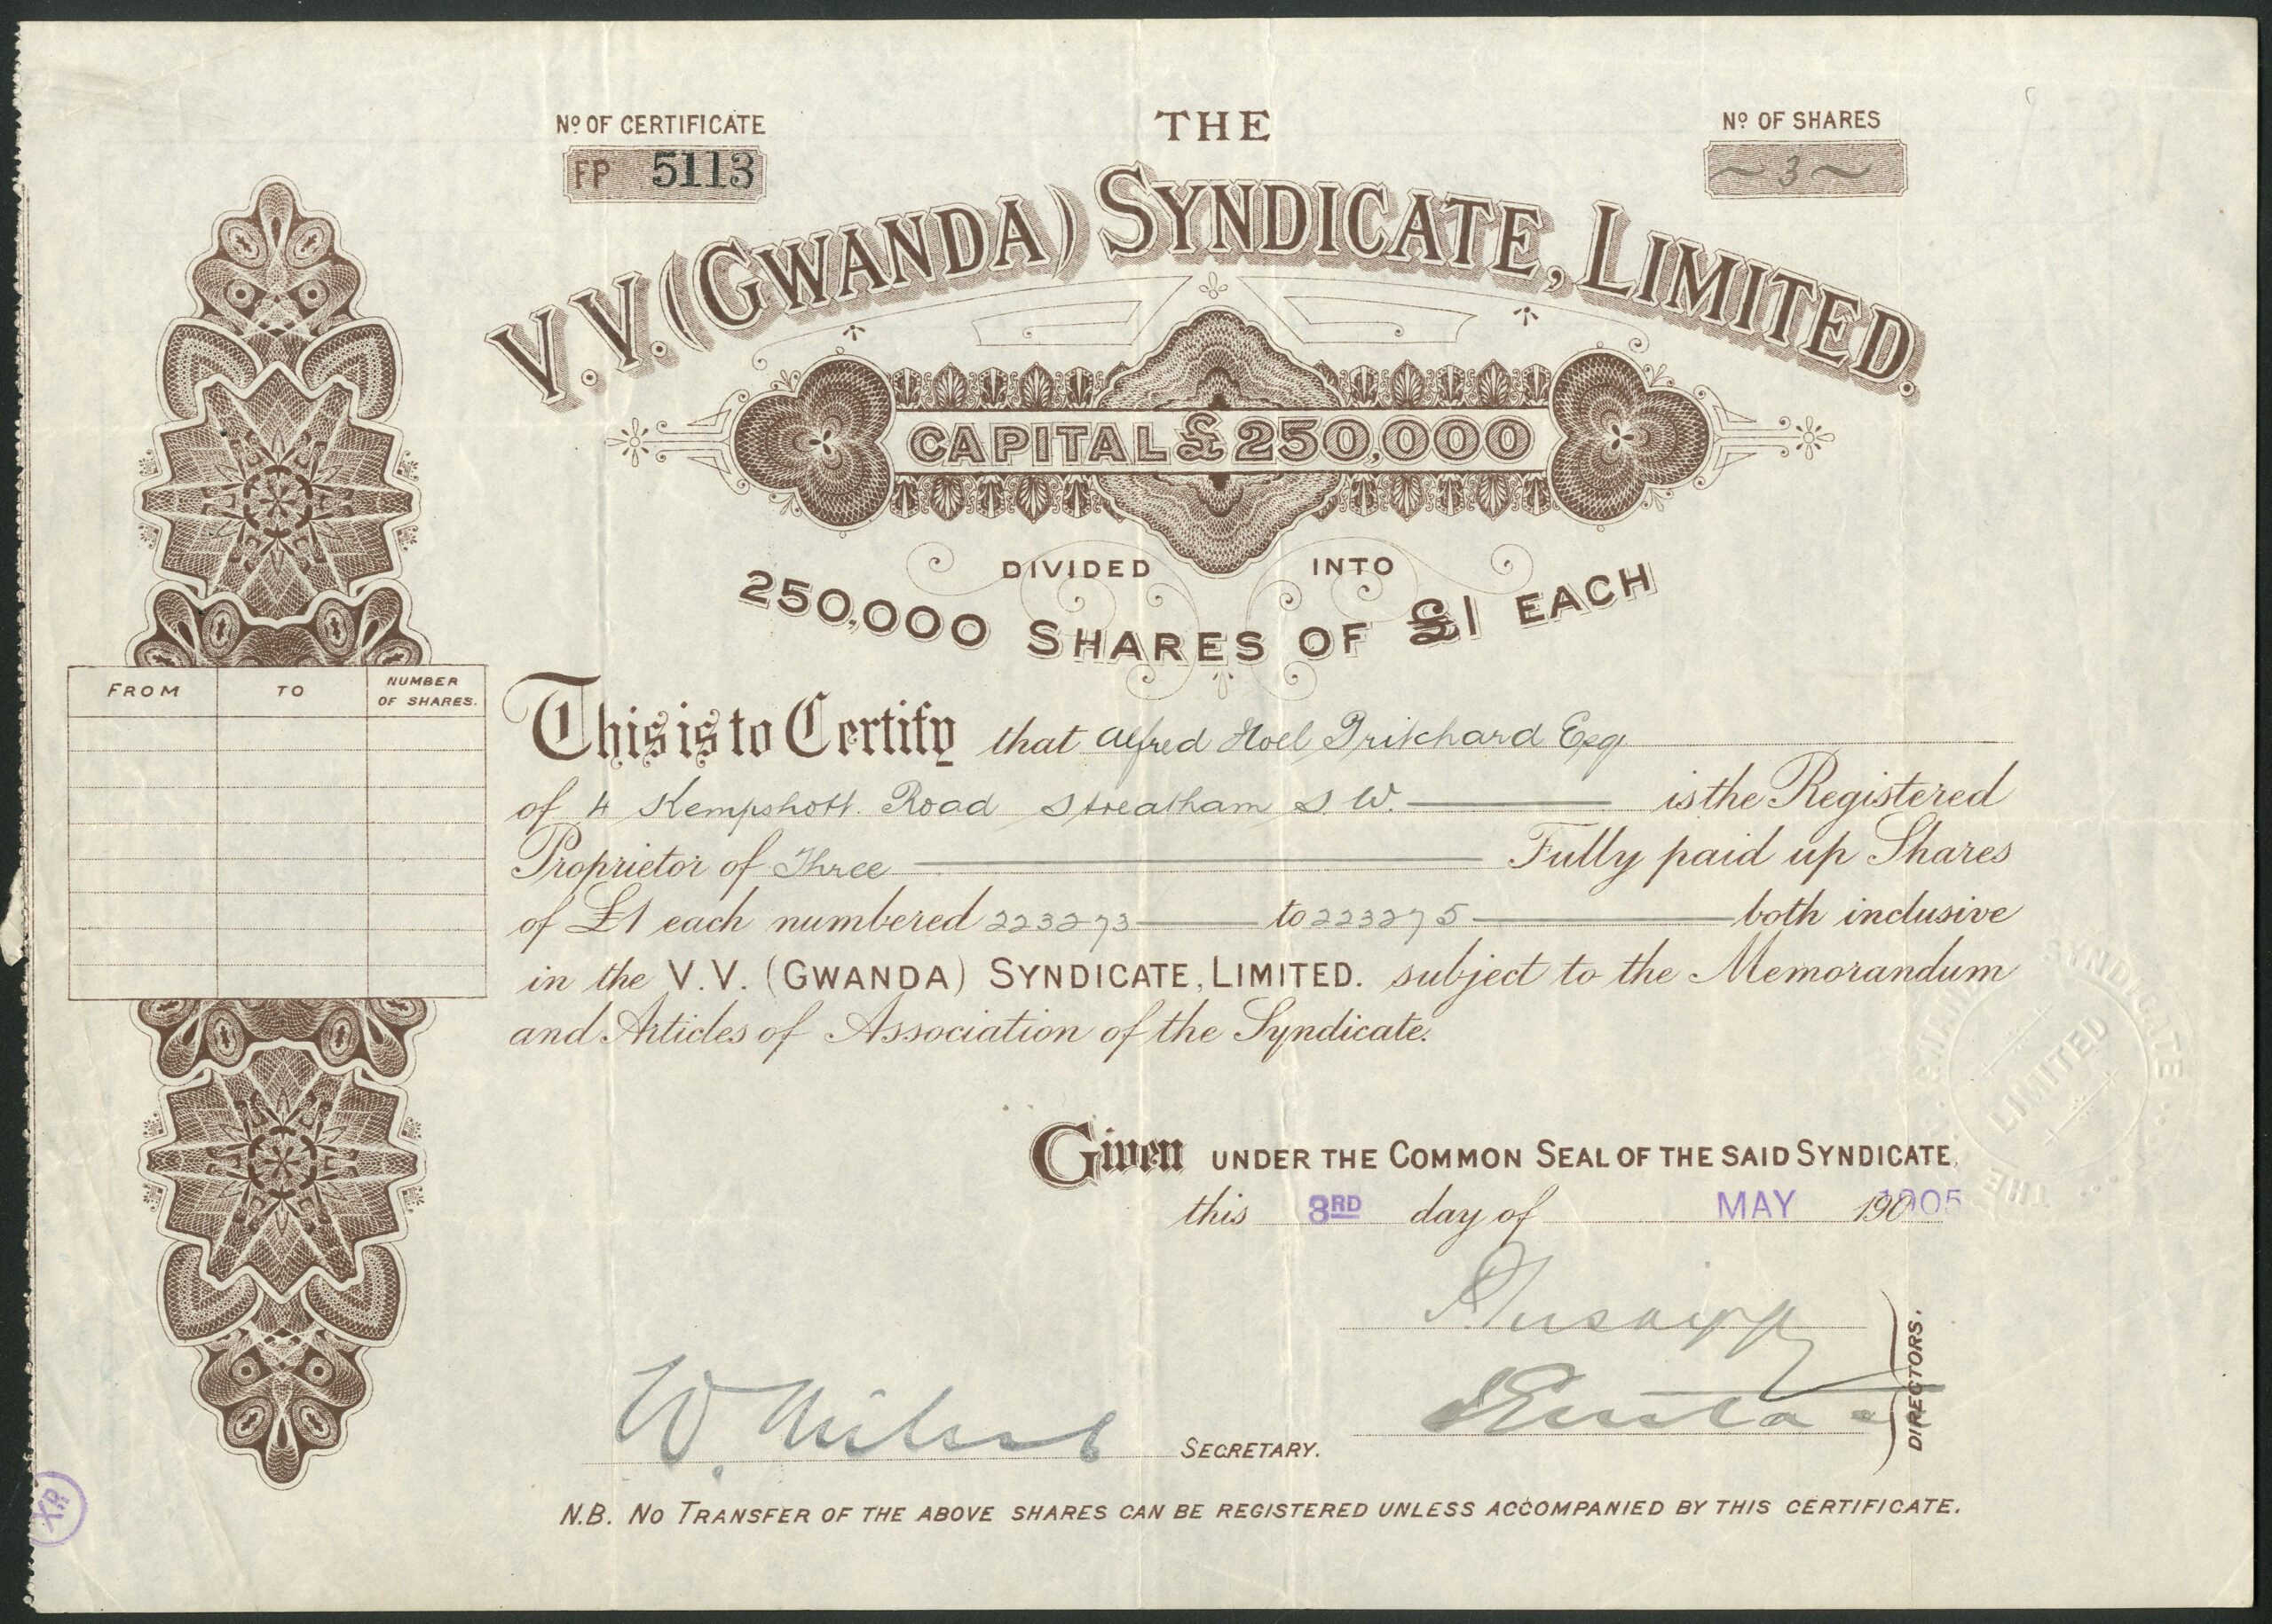 THE
Nº OF CERTIFICATE
FP 5113
Nº OF SHARES
~ 3 ~
V.V. (GWANDA) SYNDICATE, LIMITED.
CAPITAL £250,000
DIVIDED INTO
250,000 SHARES OF £1 EACH
FROM TO NUMBER OF SHARES.
This is to Certify that Alfred Hoel Pritchard Esq.
of 4 Kempshott Road Streatham S.W. is the Registered
Proprietor of Three Fully paid up Shares
of £1 each numbered 223273 to 223275 both inclusive
in the V.V. (GWANDA) SYNDICATE, LIMITED. subject to the Memorandum
and Articles of Association of the Syndicate.
Given UNDER THE COMMON SEAL OF THE SAID SYNDICATE,
this 3RD day of MAY 190 1905
THE GWANDA SYNDICATE
LIMITED
DIRECTORS.
W. SECRETARY.
N.B. NO TRANSFER OF THE ABOVE SHARES CAN BE REGISTERED UNLESS ACCOMPANIED BY THIS CERTIFICATE.
XR